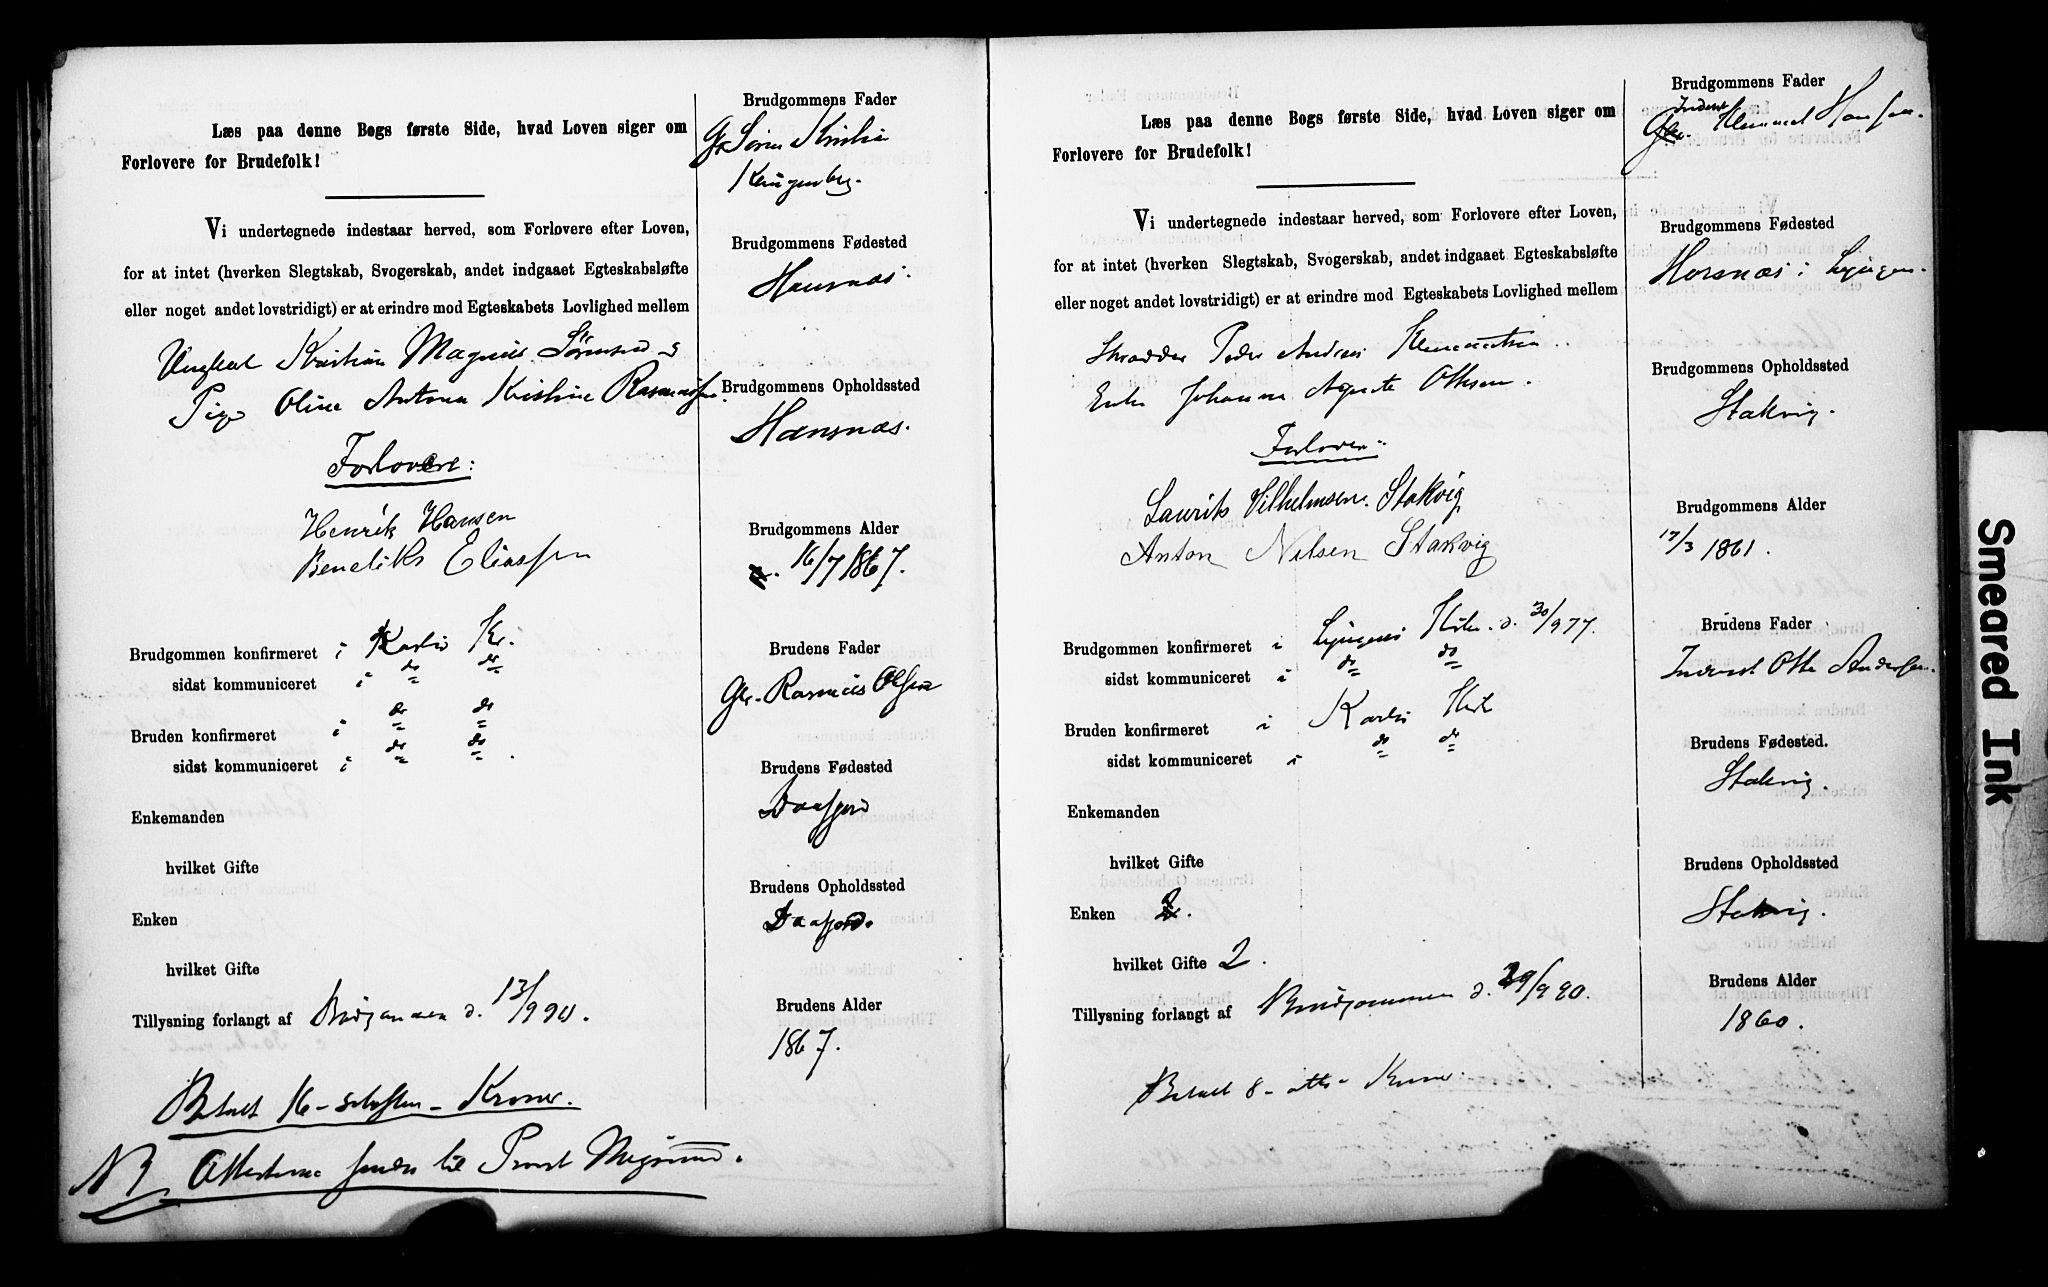 Læs paa denne Bogs første Side, hvad Loven siger om
Forlovere for Brudefolk!
Vi undertegnede indestaar herved, som Forlovere efter Loven,
for at intet (hverken Slegtskab, Svogerskab, andet indgaaet Egteskabsløfte
eller noget andet lovstridigt) er at erindre mod Egteskabets Lovlighed mellem
Ungkarl Kristian Magnus Sørensen og
Pige Oline Antona Kristine Rasmussen.
Forlovere:
Henrik Hansen
Bendiks Eliassen
Brudgommen konfirmeret i Karlsø Kr.
sidst kommuniceret i do do
Bruden konfirmeret i do do
sidst kommuniceret i do do.
Enkemanden
hvilket Gifte
Enken
hvilket Gifte
Tillysning forlangt af Brudgommen d. 13/9 90.
Betalt 16 - seksten - Kroner.
NB Attesterne sendes til Provst
Brudgommens Fader
Søren Kristian
Klingenberg.
Brudgommens Fødested
Hansnæs.
Brudgommens Opholdssted
Hansnæs.
Brudgommens Alder
16/7 1867.
Brudens Fader
Gbr. Rasmus Olsen
Brudens Fødested
Daafjord
Brudens Opholdssted
Daafjord.
Brudens Alder
1867.
Læs paa denne Bogs første Side, hvad Loven siger om
Forlovere for Brudefolk!
Vi undertegnede indestaar herved, som Forlovere efter Loven,
for at intet (hverken Slegtskab, Svogerskab, andet indgaaet Egteskabsløfte
eller noget andet lovstridigt) er at erindre mod Egteskabets Lovlighed mellem
Skrædder Peder Andreas Klemmetsen
Enke Johanna Agnete Ottesen.
Forlovere:
Laurits Vilhelmsen. Stakvig
Anton Nilsen Stakvig
Brudgommen konfirmeret i Lyngens Kirke d. 30/9 77.
sidst kommuniceret i do do
Bruden konfirmeret i Karlsø Kirke
sidst kommuniceret i do do
Enkemanden
hvilket Gifte
Enken
hvilket Gifte 2.
Tillysning forlangt af Brudgommen d. 29/9 90.
Betalt 8 - otte - Kroner.
Brudgommens Fader
Inderst Klemmet Hansen.
Brudgommens Fødested
Horsnæs i Lyngen.
Brudgommens Opholdssted
Stakvig.
Brudgommens Alder
17/3 1861.
Brudens Fader
Inderst Otte Andersen.
Brudens Fødested.
Stakvig.
Brudens Opholdssted
Stakvig.
Brudens Alder
1860.
Smeared Ink